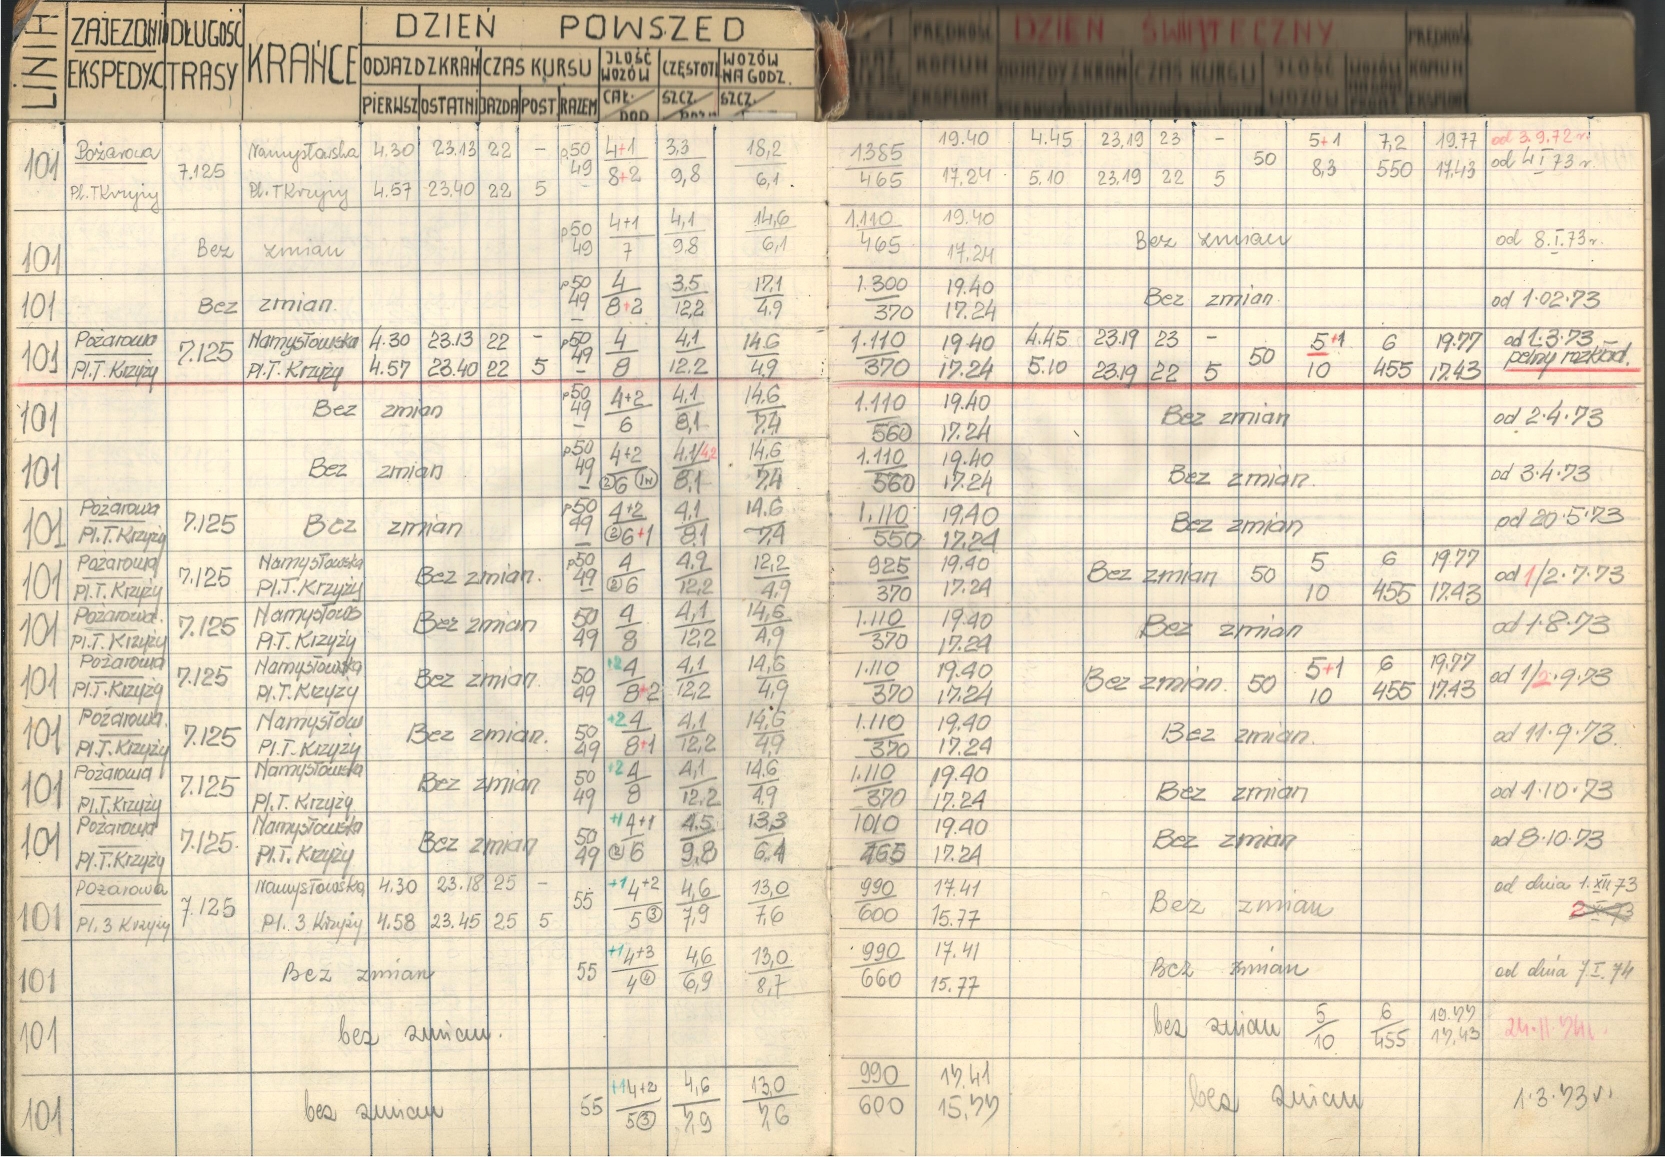 LINIA ZAJEZDNI EKSPEDYC DŁUGOŚĆ TRASY KRAŃCE DZIEŃ POWSZED
ODJAZD Z KRAŃ CZAS KURSU JLOŚĆ WOZÓW CZĘSTOTL WOZÓW NA GODZ.
PIERWSZ OSTATNI JAZDA POST. RAZEM CAŁ. SZCZ. SZCZ.
PRĘDKOŚĆ KOMUN EKSPLOAT DZIEŃ ŚWIĄTECZNY PRĘDKOŚĆ KOMUN EKSPLOAT
ODJAZDY Z KRAŃ CZAS KURSU JLOŚĆ WOZÓW
101 Pożarowa 7.125 Namysłowska 4.30 23.13 22 – p50 4+1 3,3 18,2 1385 19.40 4.45 23,19 23 – 50 5+1 7,2 19.77 od 3.9.72 r.
Pl. T Krzyży Pl. T Krzyży 4.57 23.40 22 5 49 8+2 9,8 6,1 465 17.24 5.10 23,19 22 5 8,3 550 17.43 od 4 I 73 r
101 Bez zmian p50 4+1 4,1 14,6 1.110 19.40 Bez zmian od 8.I.73 r.
49 7 9.8 6,1 465 17.24
101 Bez zmian p50 4 3,5 17,1 1.300 19.40 Bez zmian od 1.02.73
49 8+2 12,2 4,9 370 17.24
101 Pożarowa 7.125 Namysłowska 4.30 23.13 22 – p50 4 4,1 14.6 1.110 19.40 4.45 23.19 23 – 50 5+1 6 19.77 od 1.3.73
Pl.T. Krzyży Pl.T. Krzyży 4.57 23.40 22 5 49 – 8 12.2 4.9 370 17.24 5.10 23.19 22 5 10 455 17.43 pełny rozkład.
101 Bez zmian p50 4+2 4,1 14.6 1.110 19.40 Bez zmian od 2.4.73
49 – 6 8,1 7.4 560 17.24
101 Bez zmian p50 4+2 4.1/4.2 14.6 1.110 19.40 Bez zmian. od 3.4.73
49 – ②6 8,1 7.4 560 17.24
101 Pożarowa 7.125 Bez zmian p50 4+2 4,1 14.6 1.110 19.40 Bez zmian od 20.5.73
Pl.T. Krzyży 49 – ②6+1 8.1 7.4 550 17.24
101 Pożarowa 7.125 Namysłowska Bez zmian. p50 4 4,9 12,2 925 19.40 Bez zmian 50 5 6 19.77 od 1/2.7.73
Pl.T. Krzyży Pl.T. Krzyży 49 – ②6 12,2 4,9 370 17.24 10 455 17.43
101 Pożarowa. 7.125 Namysłows Bez zmian 50 4 4,1 14,6 1.110 19.40 Bez zmian od 1.8.73
Pl.T. Krzyży Pl.T. Krzyży 49 8 12,2 4,9 370 17.24
101 Pożarowa 7.125 Namysłowska Bez zmian. 50 +2 4 4,1 14,6 1.110 19.40 Bez zmian. 50 5+1 6 19.77 od 1/2.9.73
Pl.T. Krzyży Pl.T. Krzyży 49 8+2 12,2 4,9 370 17.24 10 455 17.43
101 Pożarowa. 7.125 Namysłow Bez zmian. 50 +2 4 4,1 14,6 1.110 19.40 Bez zmian. od 11.9.73.
Pl.T. Krzyży Pl.T. Krzyży 49 8+1 12,2 4,9 370 17.24
101 Pożarowa 7.125 Namysłowska Bez zmian 50 +2 4 4,1 14.6 1.110 19.40 Bez zmian od 1.10.73
Pl.T. Krzyży Pl.T. Krzyży 49 8 12,2 4.9 370 17.24
101 Pożarowa 7.125. Namysłowska Bez zmian 50 +1 4+1 4.5 13,3 1010 19.40 Bez zmian od 8.10.73
Pl.T. Krzyży Pl.T. Krzyży 49 ②6 9,8 6.4 465 17.24
101 Pożarowa 7.125 Namysłowska 4.30 23.18 25 – 55 +1 4+2 4,6 13,0 990 17.41 Bez zmian od dnia 1.XII.73
Pl. 3 Krzyży Pl. 3 Krzyży 4.58 23.45 25 5 5③ 7,9 7,6 600 15.77
101 Bez zmian 55 +1 4+3 4,6 13,0 990 17.41 Bez zmian od dnia 7.I.74
4④ 6,9 8,7 660 15.77
101 bez zmian. bez zmian 5 6 19.77 24.II.74r.
10 455 17,43
101 bez zmian 55 +1 4+2 4,6 13,0 990 17.41 bez zmian 1.3.73 r.
5③ 7,9 7,6 600 15,77